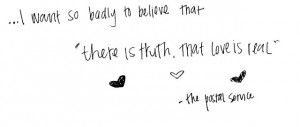 ...I want so badly to believe that
"there is truth, that love is real"
- the postal service